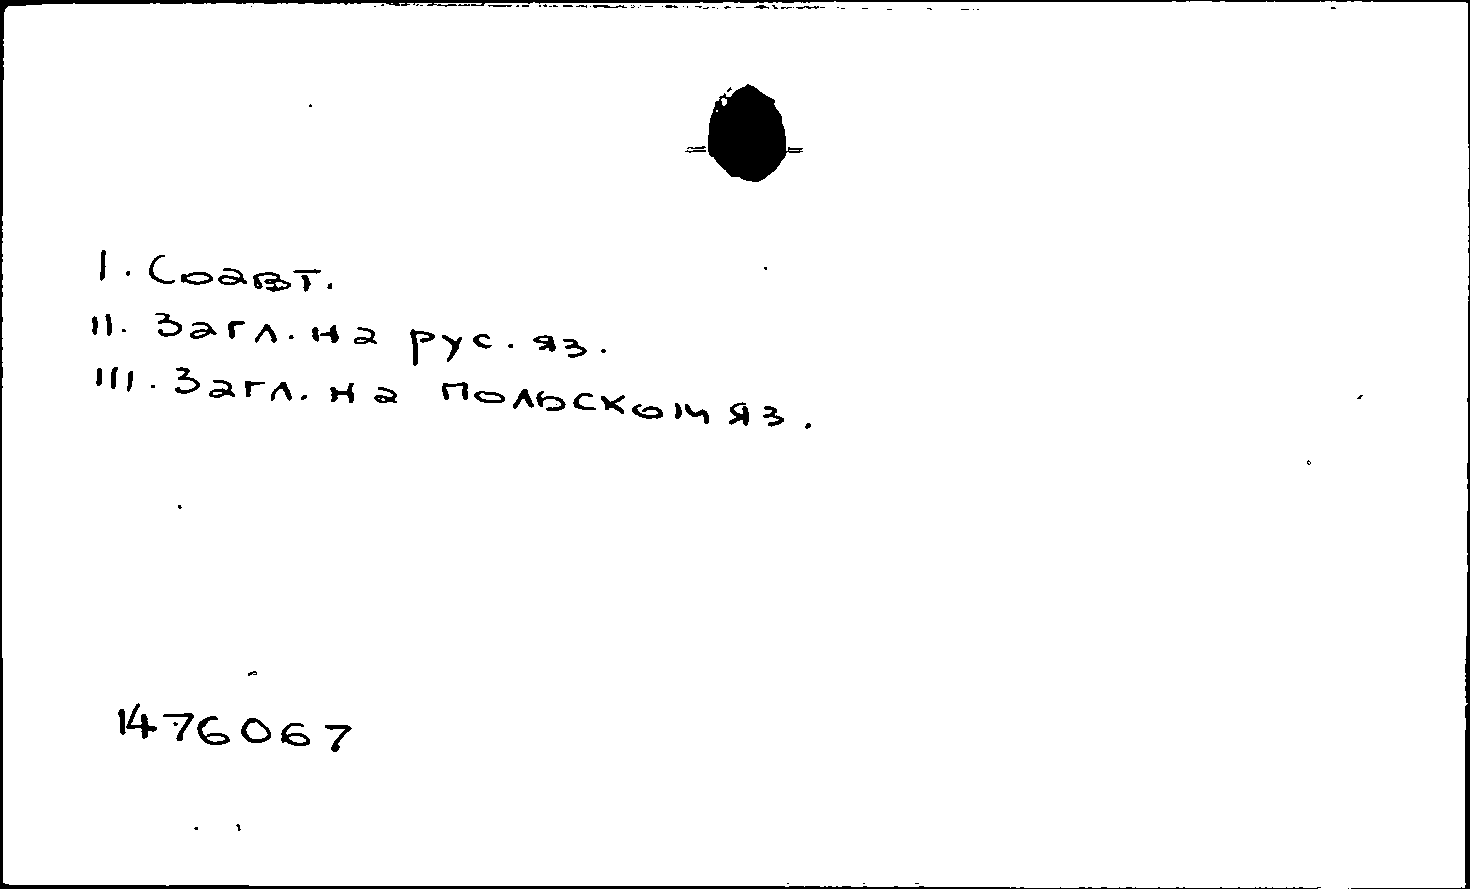 I. Соавт.
II. Загл. на рус. яз.
III. Загл. на польском яз.
1476067